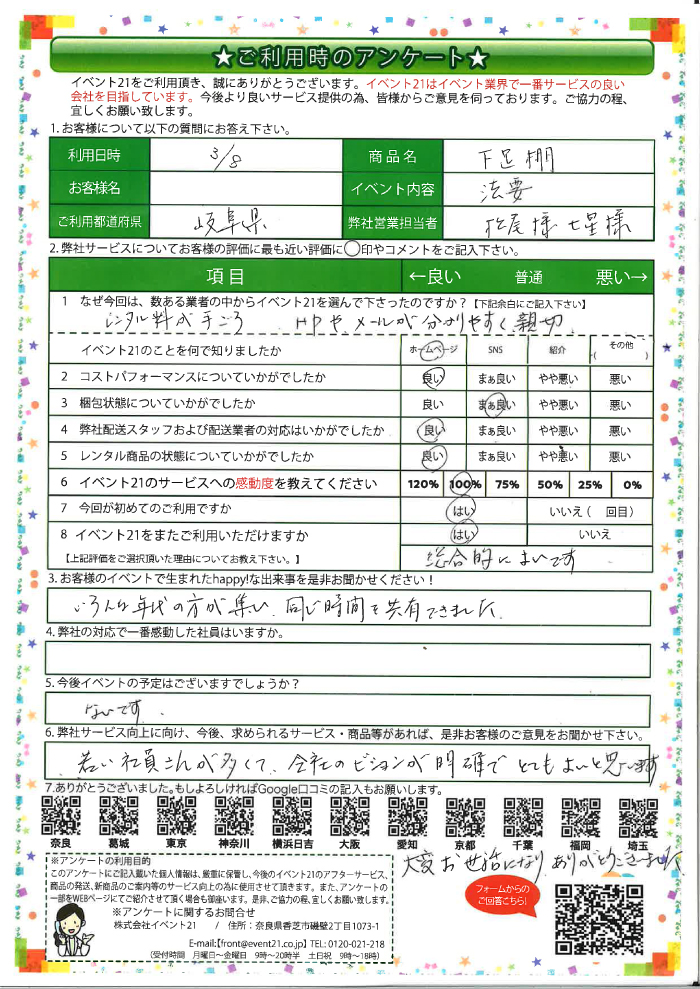 ★ご利用時のアンケート★
イベント21をご利用頂き、誠にありがとうございます。イベント21はイベント業界で一番サービスの良い
会社を目指しています。今後より良いサービス提供の為、皆様からご意見を伺っております。ご協力の程、
宜しくお願い致します。
1.お客様について以下の質問にお答え下さい。
利用日時 3/8 商品名 下足棚
お客様名 イベント内容 法要
ご利用都道府県 岐阜県 弊社営業担当者 松尾様 七星様
2.弊社サービスについてお客様の評価に最も近い評価に◯印やコメントをご記入下さい。
項目 ←良い 普通 悪い→
1 なぜ今回は、数ある業者の中からイベント21を選んで下さったのですか？【下記余白にご記入下さい】
レンタル料が手ごろ HPや、メールが分かりやすく親切
イベント21のことを何で知りましたか ホームページ SNS 紹介 その他( )
2 コストパフォーマンスについていかがでしたか 良い まぁ良い やや悪い 悪い
3 梱包状態についていかがでしたか 良い まぁ良い やや悪い 悪い
4 弊社配送スタッフおよび配送業者の対応はいかがでしたか 良い まぁ良い やや悪い 悪い
5 レンタル商品の状態についていかがでしたか 良い まぁ良い やや悪い 悪い
6 イベント21のサービスへの感動度を教えてください 120% 100% 75% 50% 25% 0%
7 今回が初めてのご利用ですか はい いいえ( 回目)
8 イベント21をまたご利用いただけますか はい いいえ
【上記評価をご選択頂いた理由についてお教え下さい。】 総合的によいです
3.お客様のイベントで生まれたhappy!な出来事を是非お聞かせください！
いろんな年代の方が集い、同じ時間を共有できました。
4.弊社の対応で一番感動した社員はいますか。
5.今後イベントの予定はございますでしょうか？
ないです。
6.弊社サービス向上に向け、今後、求められるサービス・商品等があれば、是非お客様のご意見をお聞かせ下さい。
若い社員さんが多くて、会社のビジョンが明確で とてもよいと思います
7.ありがとうございました。もしよろしければGoogle口コミの記入もお願いします。
奈良 葛城 東京 神奈川 横浜日吉 大阪 愛知 京都 千葉 福岡 埼玉
大変お世話になり、ありがとうございました
※アンケートの利用目的
このアンケートにご記入戴いた個人情報は、厳重に保管し、今後のイベント21のアフターサービス、
商品の発送、新商品のご案内等のサービス向上の為に使用させて頂きます。また、アンケートの
一部をWEBページにてご紹介させて頂く場合も御座います。是非、ご協力の程、宜しくお願い致します。
※アンケートに関するお問合せ
株式会社イベント21 / 住所：奈良県香芝市磯壁2丁目1073-1
E-mail:【front@event21.co.jp】 TEL: 0120-021-218
（受付時間 月曜日～金曜日 9時～20時半 土日祝 9時～18時）
フォームからの
ご回答こちら！